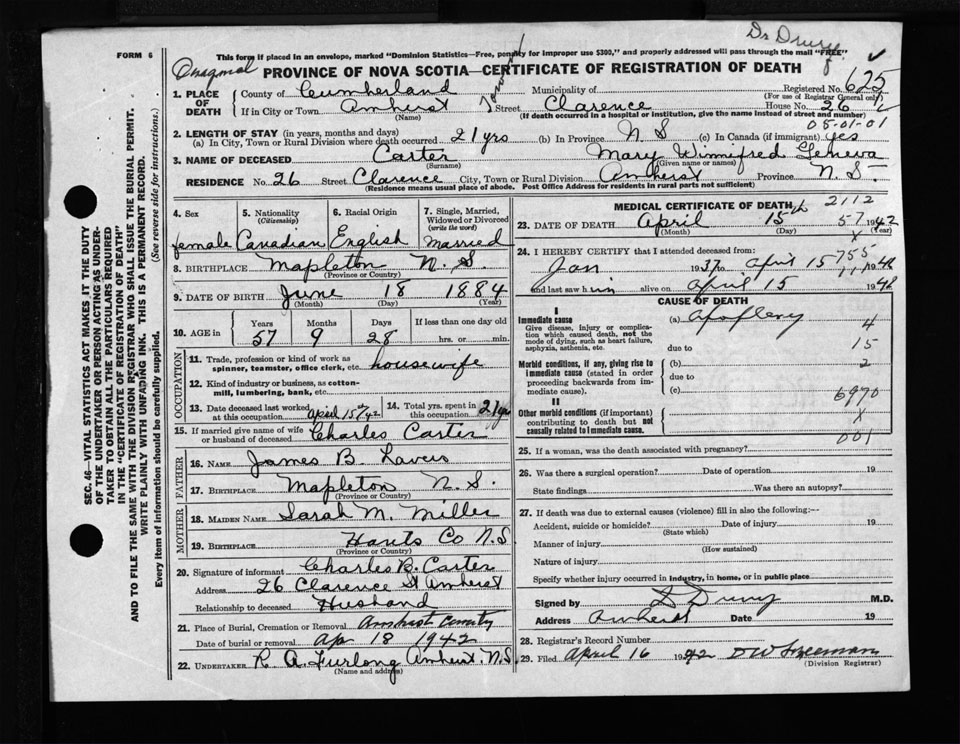 Dr Drury
FORM 6
This form if placed in an envelope, marked "Dominion Statistics—Free, penalty for improper use $300," and properly addressed will pass through the mail "FREE"
PROVINCE OF NOVA SCOTIA—CERTIFICATE OF REGISTRATION OF DEATH
Registered No. 625
(For use of Registrar General only)
1. PLACE OF DEATH
County of Cumberland Municipality of
If in City or Town Amherst Street Clarence House No. 26
(Name) (If death occurred in a hospital or institution, give the name instead of street and number)
05-01-01
2. LENGTH OF STAY (in years, months and days)
(a) In City, Town or Rural Division where death occurred 21 yrs (b) In Province N. S (c) In Canada (if immigrant) yes
3. NAME OF DECEASED Carter Mary Winnifred Geneva
(Surname) (Given name or names)
RESIDENCE No. 26 Street Clarence City, Town or Rural Division Amherst Province N. S.
(Residence means usual place of abode. Post Office Address for residents in rural parts not sufficient)
4. Sex female
5. Nationality (Citizenship) Canadian
6. Racial Origin English
7. Single, Married, Widowed or Divorced (write the word) Married
8. BIRTHPLACE Mapleton N. S.
(Province or Country)
9. DATE OF BIRTH June 18 1884
(Month) (Day) (Year)
10. AGE in Years Months Days If less than one day old
57 9 28 hrs. or min.
OCCUPATION
11. Trade, profession or kind of work as spinner, teamster, office clerk, etc. housewife
12. Kind of industry or business, as cotton-mill, lumbering, bank, etc.
13. Date deceased last worked at this occupation April 15th 42
14. Total yrs. spent in this occupation 21 yrs
15. If married give name of wife or husband of deceased Charles Carter
FATHER
16. NAME James B. Lavers
17. BIRTHPLACE Mapleton N. S.
(Province or Country)
MOTHER
18. MAIDEN NAME Sarah M. Miller
19. BIRTHPLACE Hants Co N.S
(Province or Country)
20. Signature of informant Charles R. Carter
Address 26 Clarence St Amherst
Relationship to deceased Husband
21. Place of Burial, Cremation or Removal Amherst County
Date of burial or removal Ap 18 1942
22. UNDERTAKER R. A. Furlong Amherst. N.S.
(Name and address)
MEDICAL CERTIFICATE OF DEATH 2112
23. DATE OF DEATH April 15th 1942
(Month) (Day) (Year)
57
X
24. I HEREBY CERTIFY that I attended deceased from:
755
Jan 1937 to April 15 1942
and last saw h alive on April 15 1942
CAUSE OF DEATH
I
Immediate cause (a)
Give disease, injury or complication which caused death, not the mode of dying, such as heart failure, asphyxia, asthenia, etc.
due to
4
15
Morbid conditions, if any, giving rise to immediate cause (stated in order proceeding backwards from immediate cause).
(b) 2
due to
(c) 6970
II
Other morbid conditions (if important) contributing to death but not causally related to immediate cause.
X
001
25. If a woman, was the death associated with pregnancy?
26. Was there a surgical operation? Date of operation 19
State findings Was there an autopsy?
27. If death was due to external causes (violence) fill in also the following:—
Accident, suicide or homicide? Date of injury 19
(State which)
Manner of injury
(How sustained)
Nature of injury
Specify whether injury occurred in industry, in home, or in public place
Signed by D Drury M.D.
Address Amherst Date 19
28. Registrar's Record Number
29. Filed April 16 1942
(Division Registrar)
SEC. 46—VITAL STATISTICS ACT MAKES IT THE DUTY
OF THE UNDERTAKER OR PERSON ACTING AS UNDER-
TAKER TO OBTAIN ALL THE PARTICULARS REQUIRED
IN THE "CERTIFICATE OF REGISTRATION OF DEATH"
AND TO FILE THE SAME WITH THE DIVISION REGISTRAR WHO SHALL ISSUE THE BURIAL PERMIT.
WRITE PLAINLY WITH UNFADING INK. THIS IS A PERMANENT RECORD.
Every item of information should be carefully supplied. (See reverse side for instructions.)